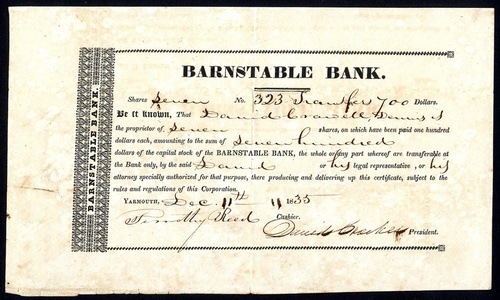 BARNSTABLE BANK.
BARNSTABLE BANK.
Shares Seven No. 323 Transfer 700 Dollars.
Be it known, That David Crowell Dennis is
the proprietor of seven shares, on which have been paid one hundred
dollars each, amounting to the sum of seven hundred
dollars of the capital stock of the BARNSTABLE BANK, the whole or any part whereof are transferable at
the Bank only, by the said David or his legal representative, or his
attorney specially authorized for that purpose, there producing and delivering up this certificate, subject to the
rules and regulations of this Corporation.
YARMOUTH, Dec. 11th 1835
Timothy Reed Cashier.
David Crocker President.